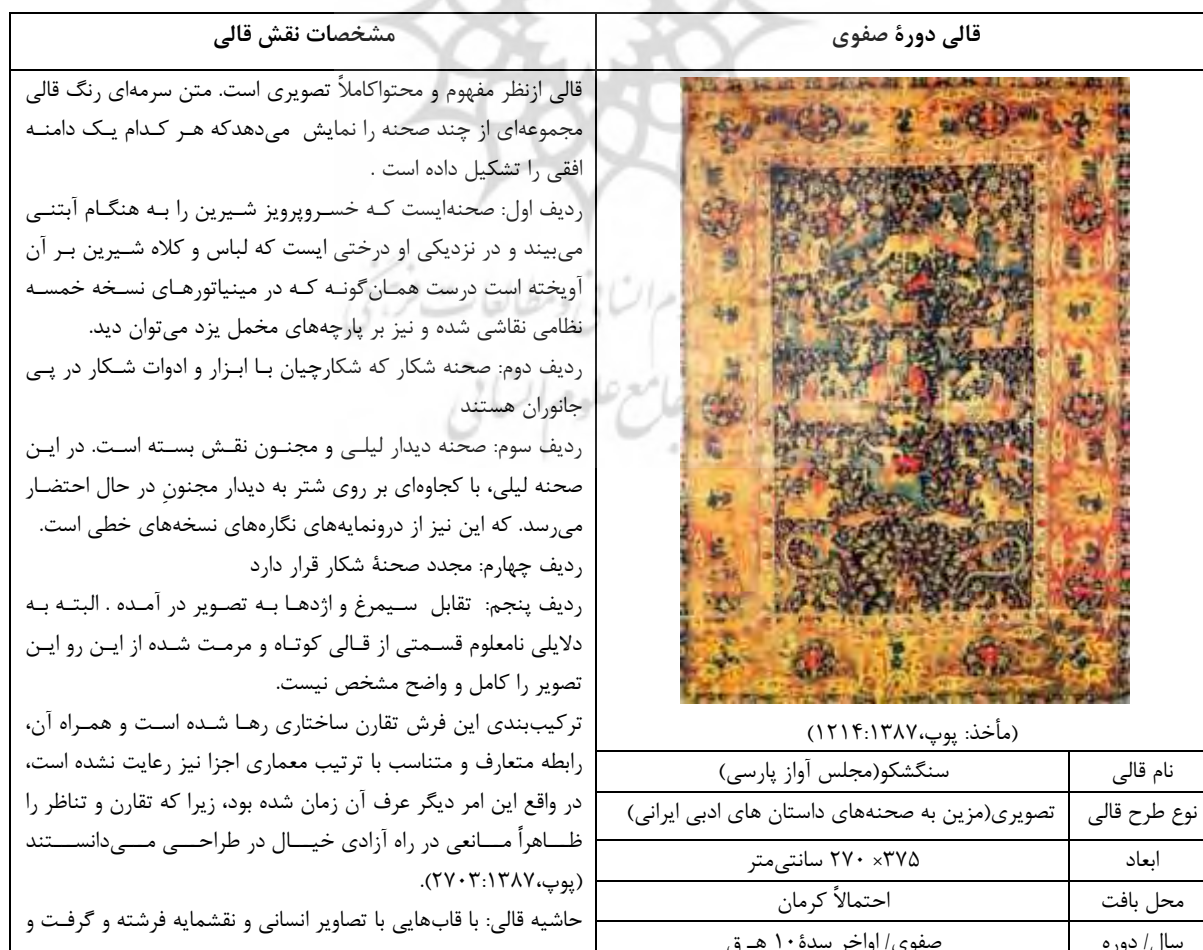 قالی دورهٔ صفوی
مشخصات نقش قالی
(مأخذ: پوپ،۱۲۱۴:۱۳۸۷)
نام قالی
سنگشکو(مجلس آواز پارسی)
نوع طرح قالی
تصویری(مزین به صحنه‌های داستان های ادبی ایرانی)
ابعاد
۳۷۵× ۲۷۰ سانتی‌متر
محل بافت
احتمالاً کرمان
سال/ دوره
صفوی/ اواخر سدهٔ ۱۰ هـ ق
قالی ازنظر مفهوم و محتواکاملاً تصویری است. متن سرمه‌ای رنگ قالی
مجموعه‌ای از چند صحنه را نمایش می‌دهدکه هر کدام یک دامنه
افقی را تشکیل داده است .
ردیف اول: صحنه‌ایست که خسروپرویز شیرین را به هنگام آبتنی
می‌بیند و در نزدیکی او درختی ایست که لباس و کلاه شیرین بر آن
آویخته است درست همان‌گونه که در مینیاتورهای نسخه خمسه
نظامی نقاشی شده و نیز بر پارچه‌های مخمل یزد می‌توان دید.
ردیف دوم: صحنه شکار که شکارچیان با ابزار و ادوات شکار در پی
جانوران هستند
ردیف سوم: صحنه دیدار لیلی و مجنون نقش بسته است. در این
صحنه لیلی، با کجاوه‌ای بر روی شتر به دیدار مجنونِ در حال احتضار
می‌رسد. که این نیز از درونمایه‌های نگاره‌های نسخه‌های خطی است.
ردیف چهارم: مجدد صحنهٔ شکار قرار دارد
ردیف پنجم: تقابل سیمرغ و اژدها به تصویر در آمده . البته به
دلایلی نامعلوم قسمتی از قالی کوتاه و مرمت شده از این رو این
تصویر را کامل و واضح مشخص نیست.
ترکیب‌بندی این فرش تقارن ساختاری رها شده است و همراه آن،
رابطه متعارف و متناسب با ترتیب معماری اجزا نیز رعایت نشده است،
در واقع این امر دیگر عرف آن زمان شده بود، زیرا که تقارن و تناظر را
ظاهراً مانعی در راه آزادی خیال در طراحی می‌دانستند
(پوپ،۲۷۰۳:۱۳۸۷).
حاشیه قالی: با قاب‌هایی با تصاویر انسانی و نقشمایه فرشته و گرفت و